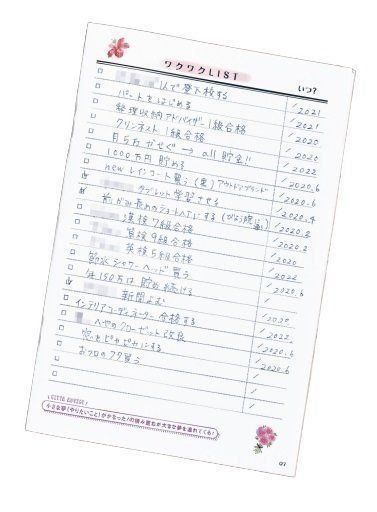 ワクワクLIST
いつ?
人で登下校する
／2021
パートをはじめる
／2021
整理収納アドバイザー1級合格
／2020
クリンネスト1級合格
／2020
月5万かせぐ → all 貯金!!
／2022
1000万円 貯める
／2020.6
newレインコート買う(黒)アウトドアブランド
／2020.6
タブレット学習させる
／2020.4
前がみ長めのショートヘアにする
漢検7級合格
／2020.2
算検9級合格
／2020
英検5級合格
／2022
節水シャワーヘッド買う
／2020.6
年150万は貯め続ける
／
新聞よむ
／2020
インテリアコーディネーター合格する
／2022
へやのクローゼット改良
／2020.6
窓をピカピカにする
／2020.6
おフロのフタ買う
小さな夢(やりたいこと)がかなった!の積み重ねが大きな夢を連れてくる!